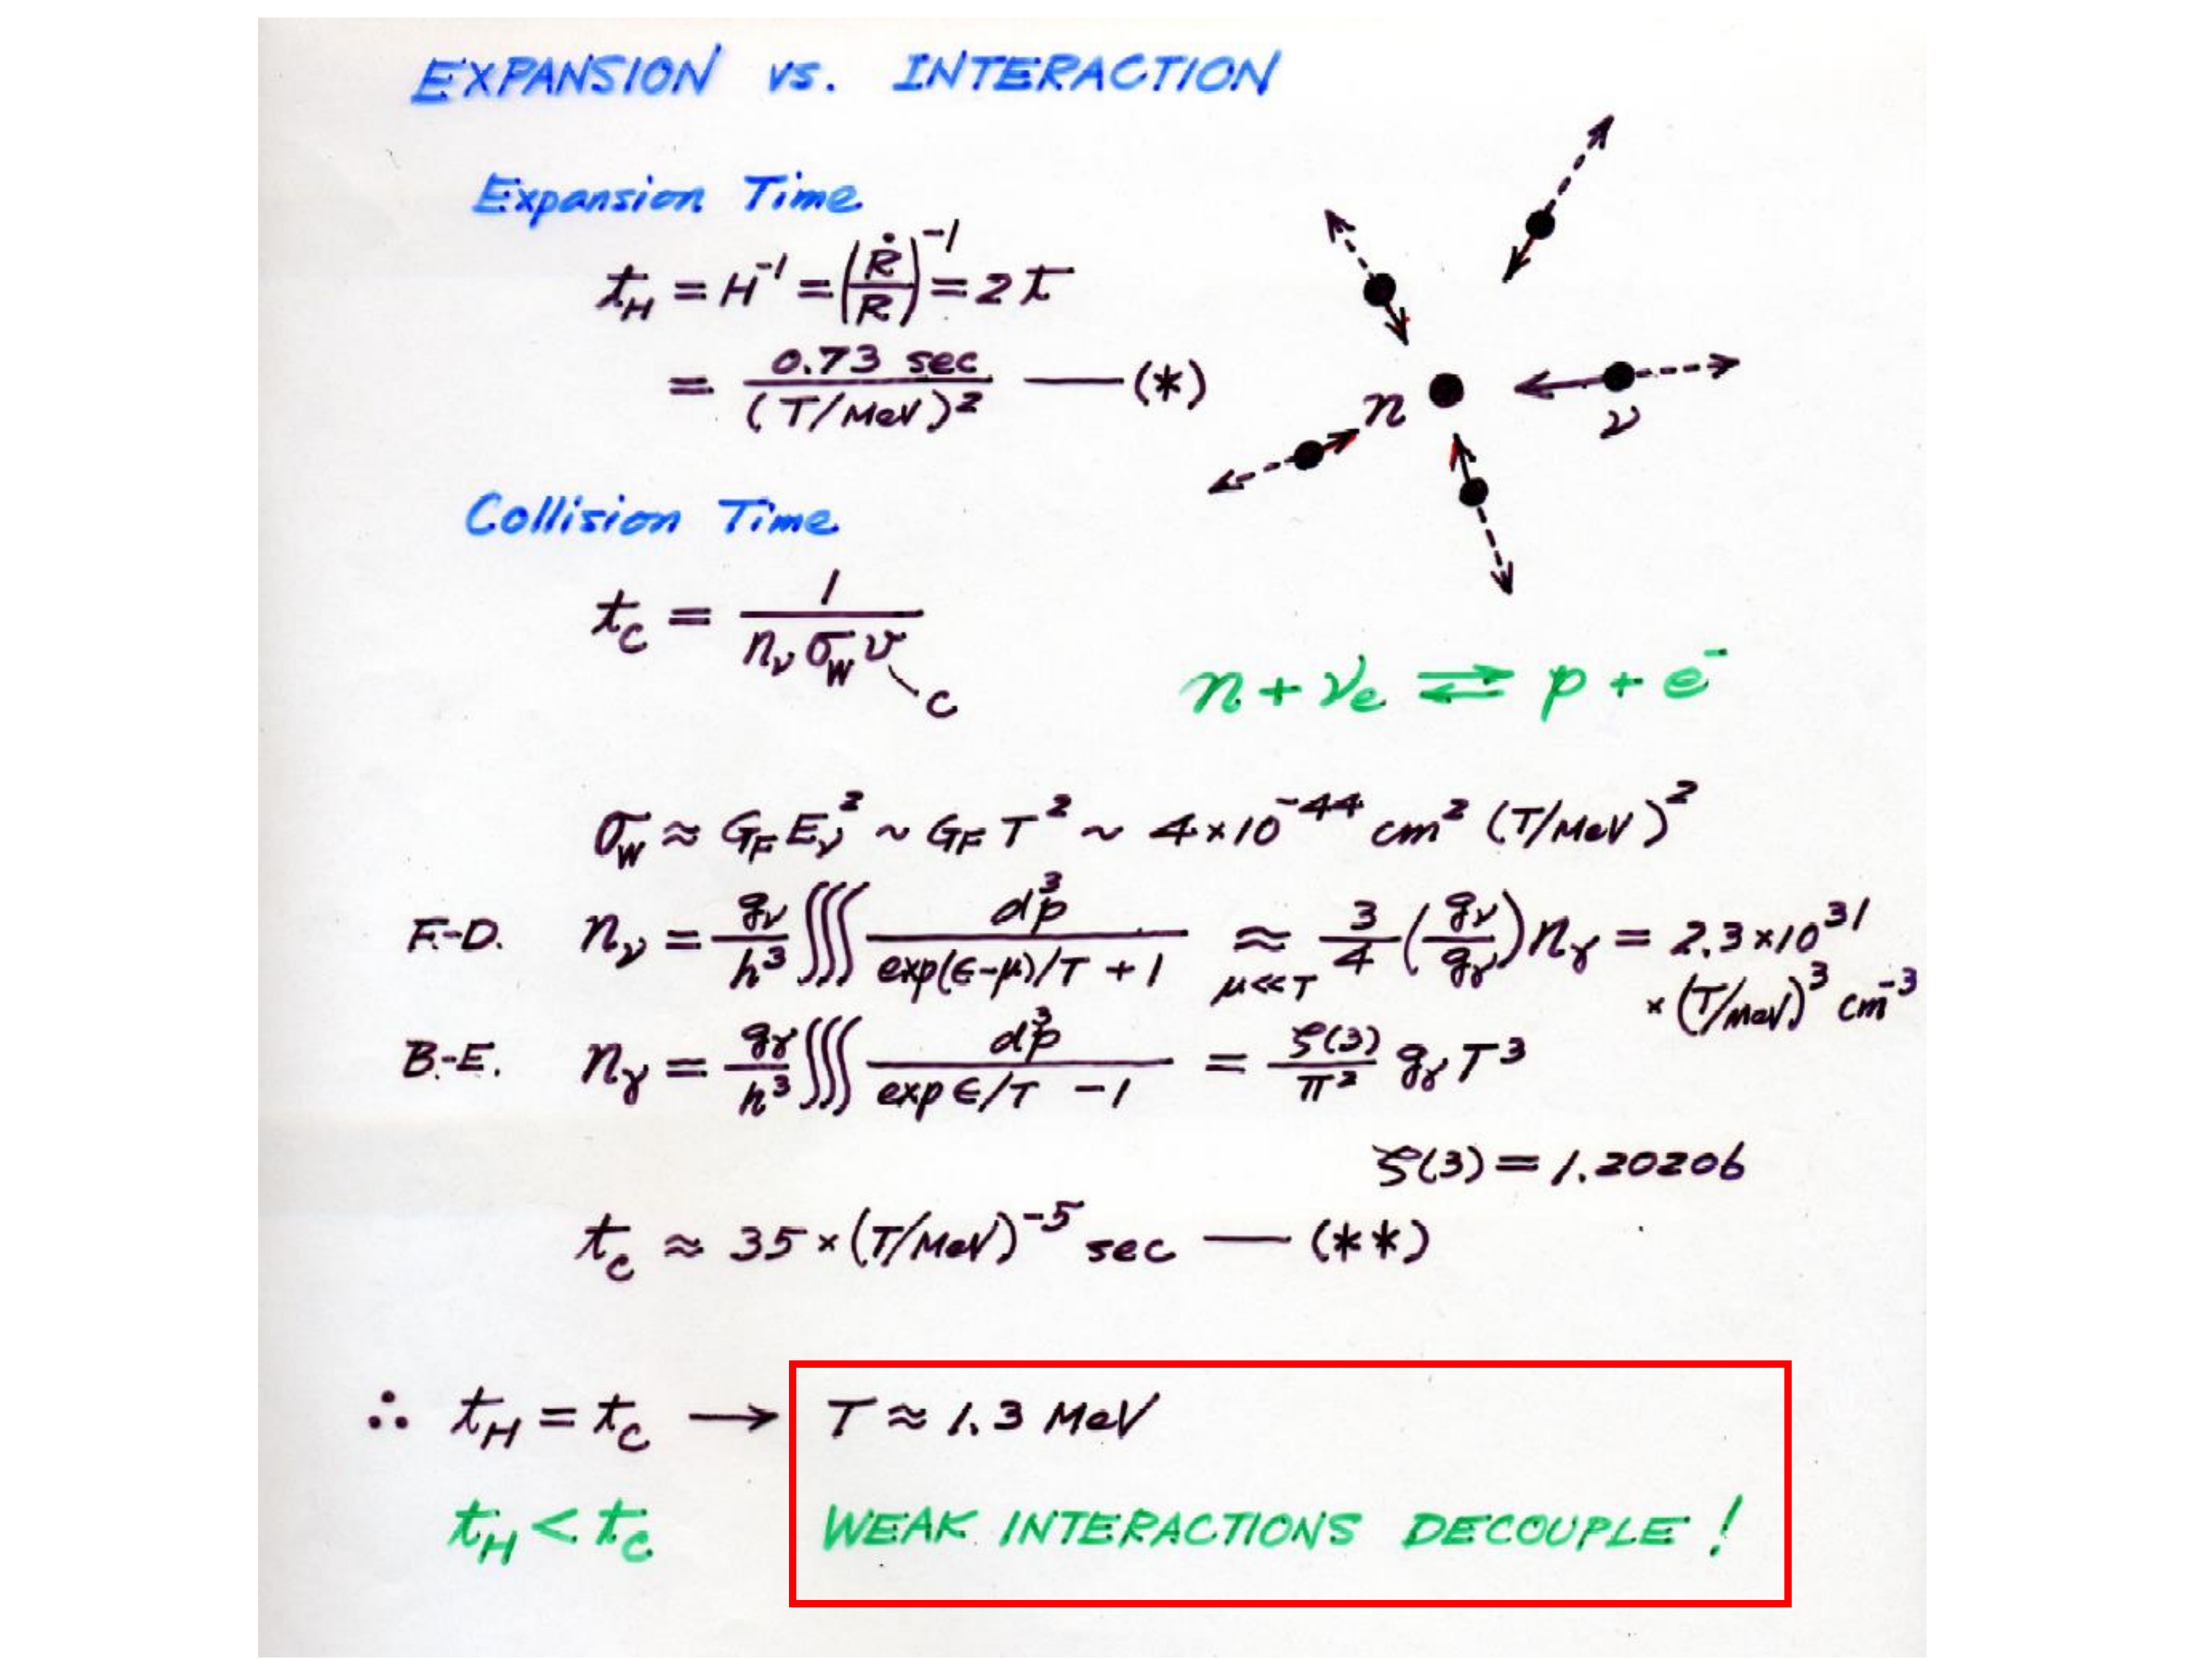 EXPANSION vs. INTERACTION
Expansion Time
t_H = H⁻¹ = (Ṙ/R)⁻¹ = 2t
= 0.73 sec / (T/MeV)² —— (*)
n
ν
Collision Time
t_c = 1 / (n_ν σ_W v)
c
n + ν_e ⇄ p + e⁻
σ_W ≈ G_F E_ν² ~ G_F T² ~ 4×10⁻⁴⁴ cm² (T/MeV)²
F.-D. n_ν = g_ν/h³ ∭ d³p / (exp(ε-μ)/T + 1) ≈ 3/4 (g_ν/g_γ) n_γ = 2.3×10³¹
μ<<T × (T/MeV)³ cm⁻³
B.-E. n_γ = g_γ/h³ ∭ d³p / (exp ε/T - 1) = ζ(3)/π² g_γ T³
ζ(3) = 1.20206
t_c ≈ 35 × (T/MeV)⁻⁵ sec —— (**)
∴ t_H = t_c → T ≈ 1.3 MeV
t_H < t_c WEAK INTERACTIONS DECOUPLE !